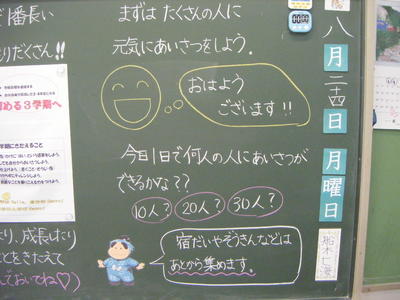 番長い
まずは たくさんの人に
りだくさん!!
元気にあいさつをしよう.
おはよう
ございます!!
める3学期へ
今日1日で何人の人にあいさつが
できるかな??
10人? 20人? 30人?
たり、成長したり
ことをきたえて
しておいてね♡)
宿だいやぞうきんなどは
あとから集めます.
八
月
二十四
日
月
曜
日